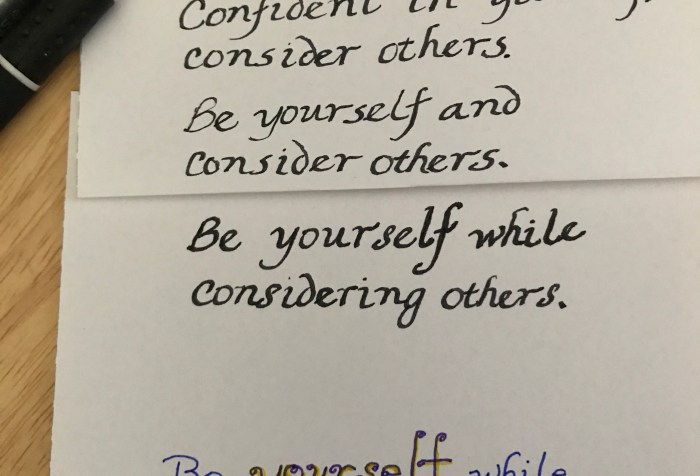 Confident in
consider others.
Be yourself and
consider others.
Be yourself while
considering others.
Be yourself while